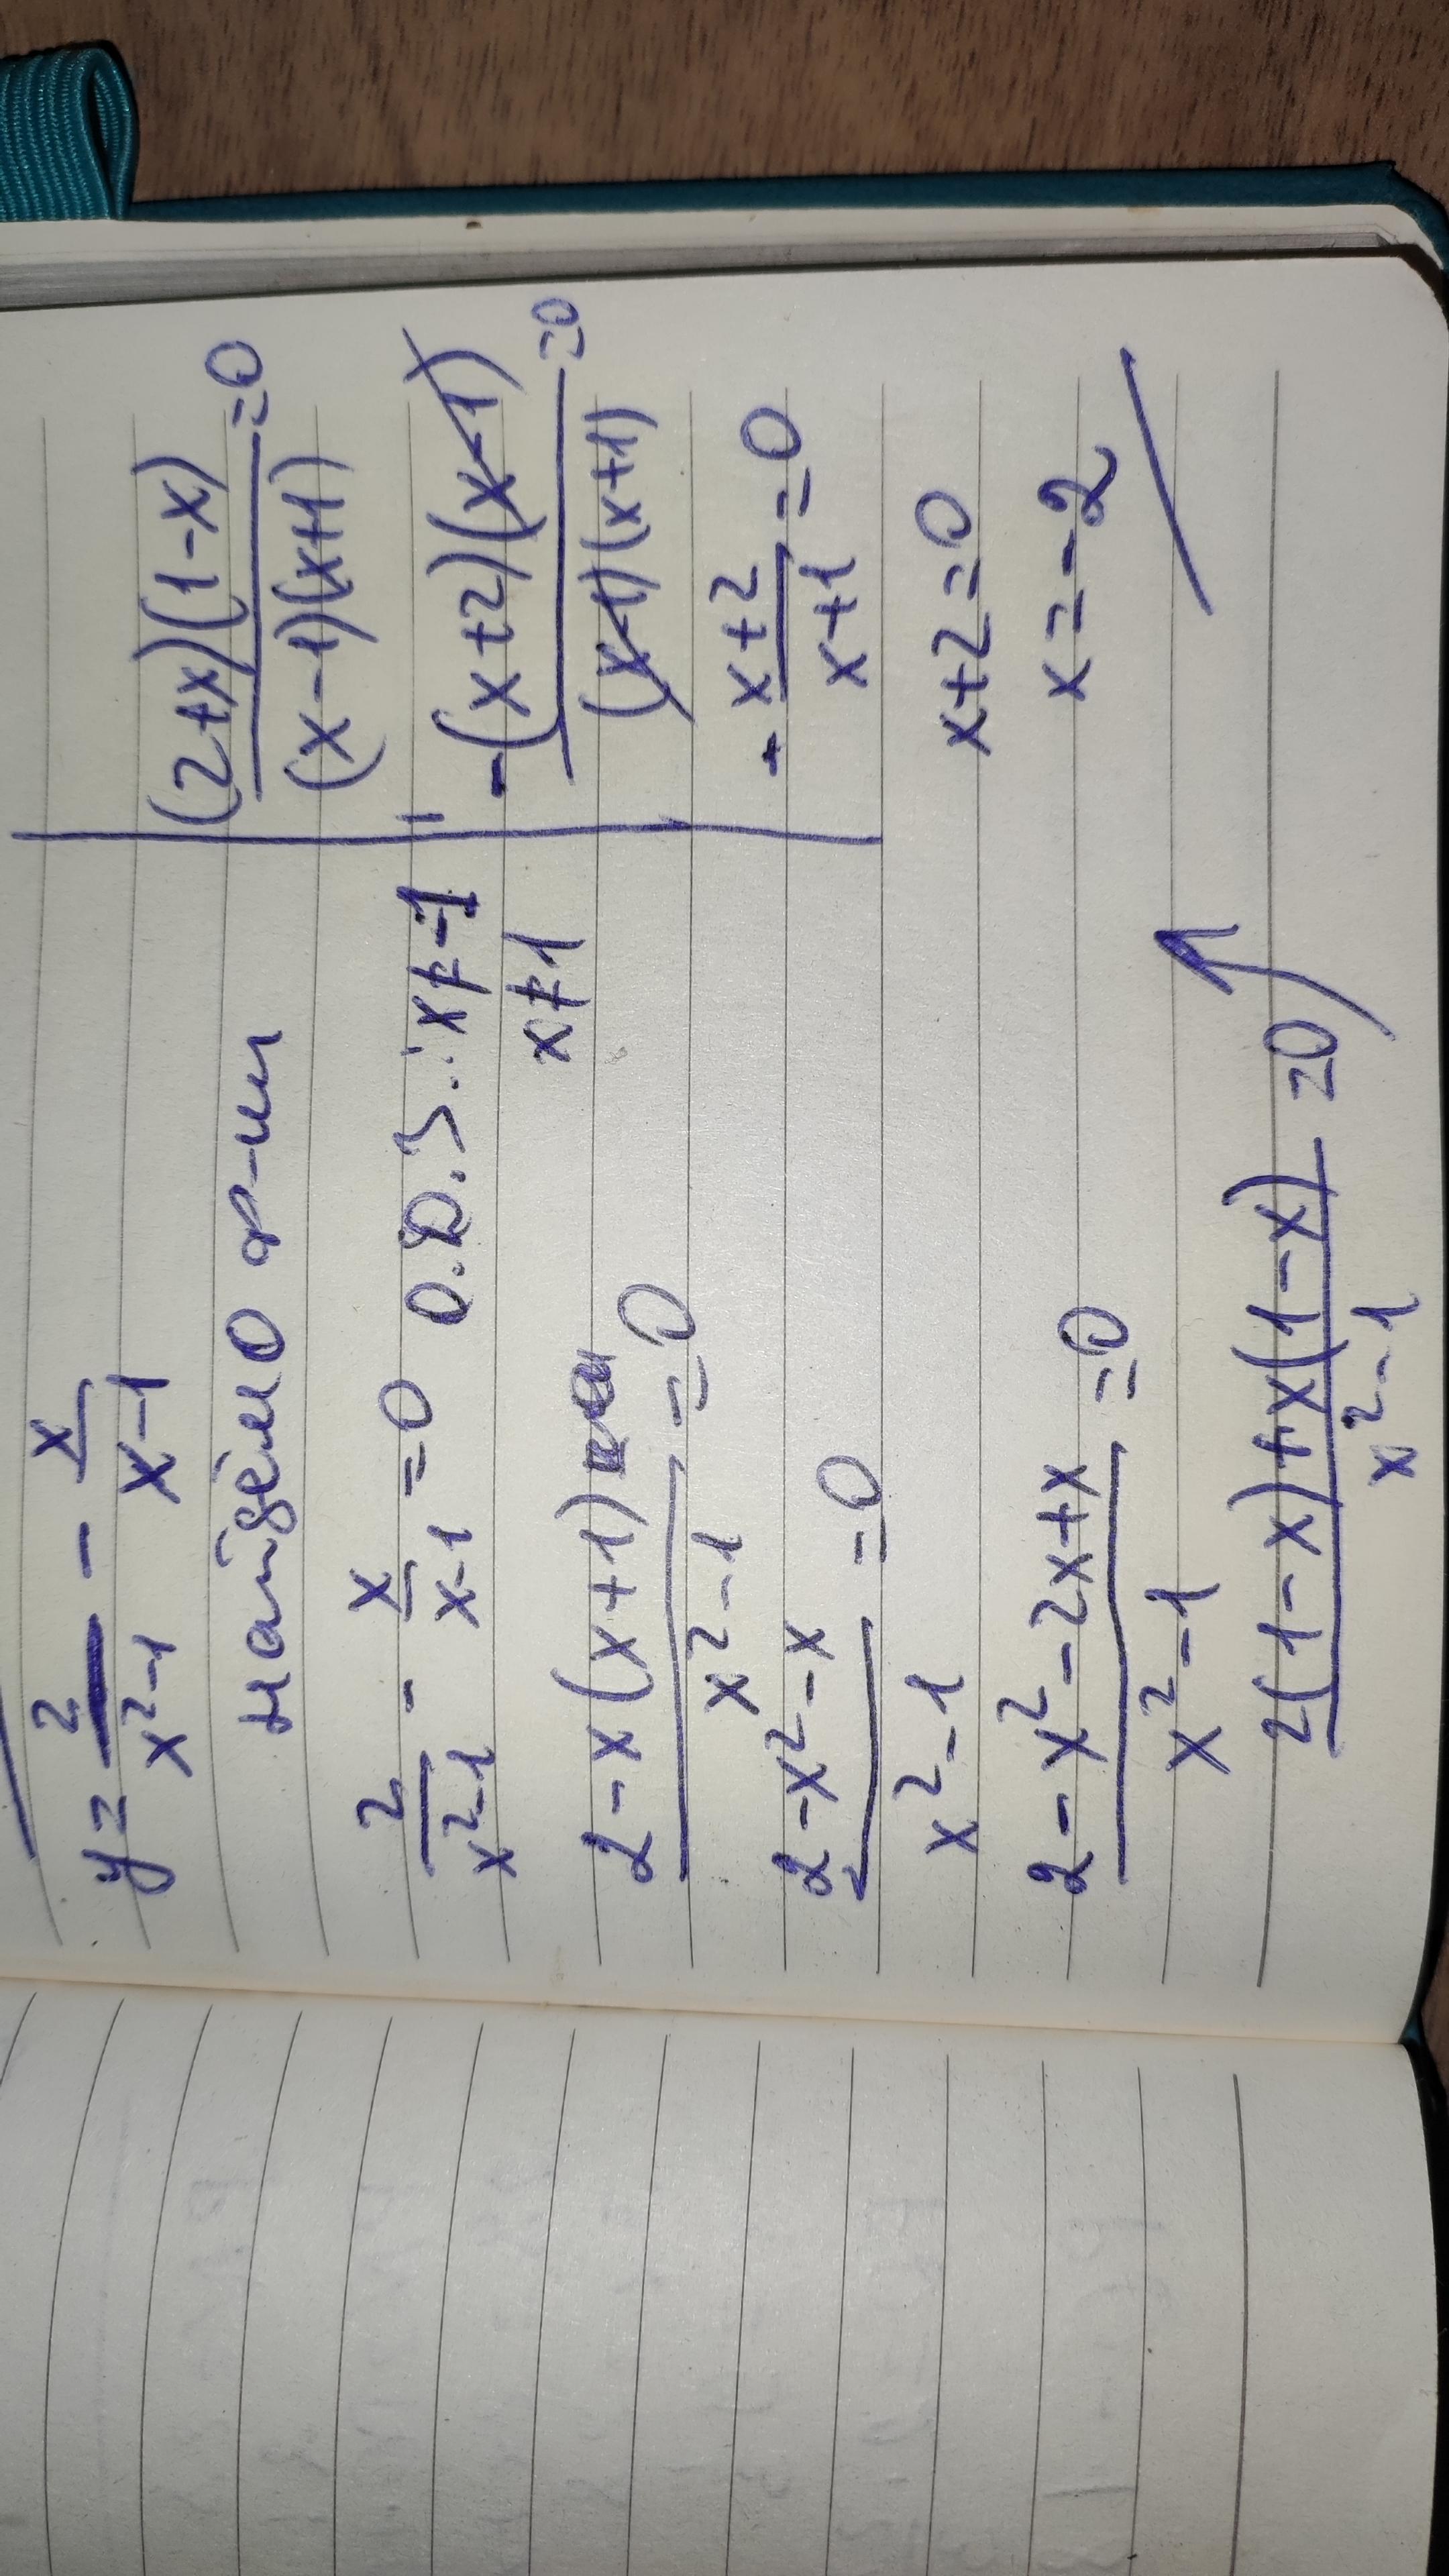 y = 2/(x²-1) - x/(x-1)
найдём 0 ф-ии
2/(x²-1) - x/(x-1) = 0 О.D.З.: x ≠ -1
x ≠ 1
(2-x(x+1))/(x²-1) = 0
(2-x²-x)/(x²-1) = 0
(2-x²-2x+x)/(x²-1) = 0
(2(1-x)+x(1-x))/(x²-1) = 0
((2+x)(1-x))/((x-1)(x+1)) = 0
-((x+2)(x-1))/((x-1)(x+1)) = 0
- (x+2)/(x+1) = 0
x+2=0
x=-2